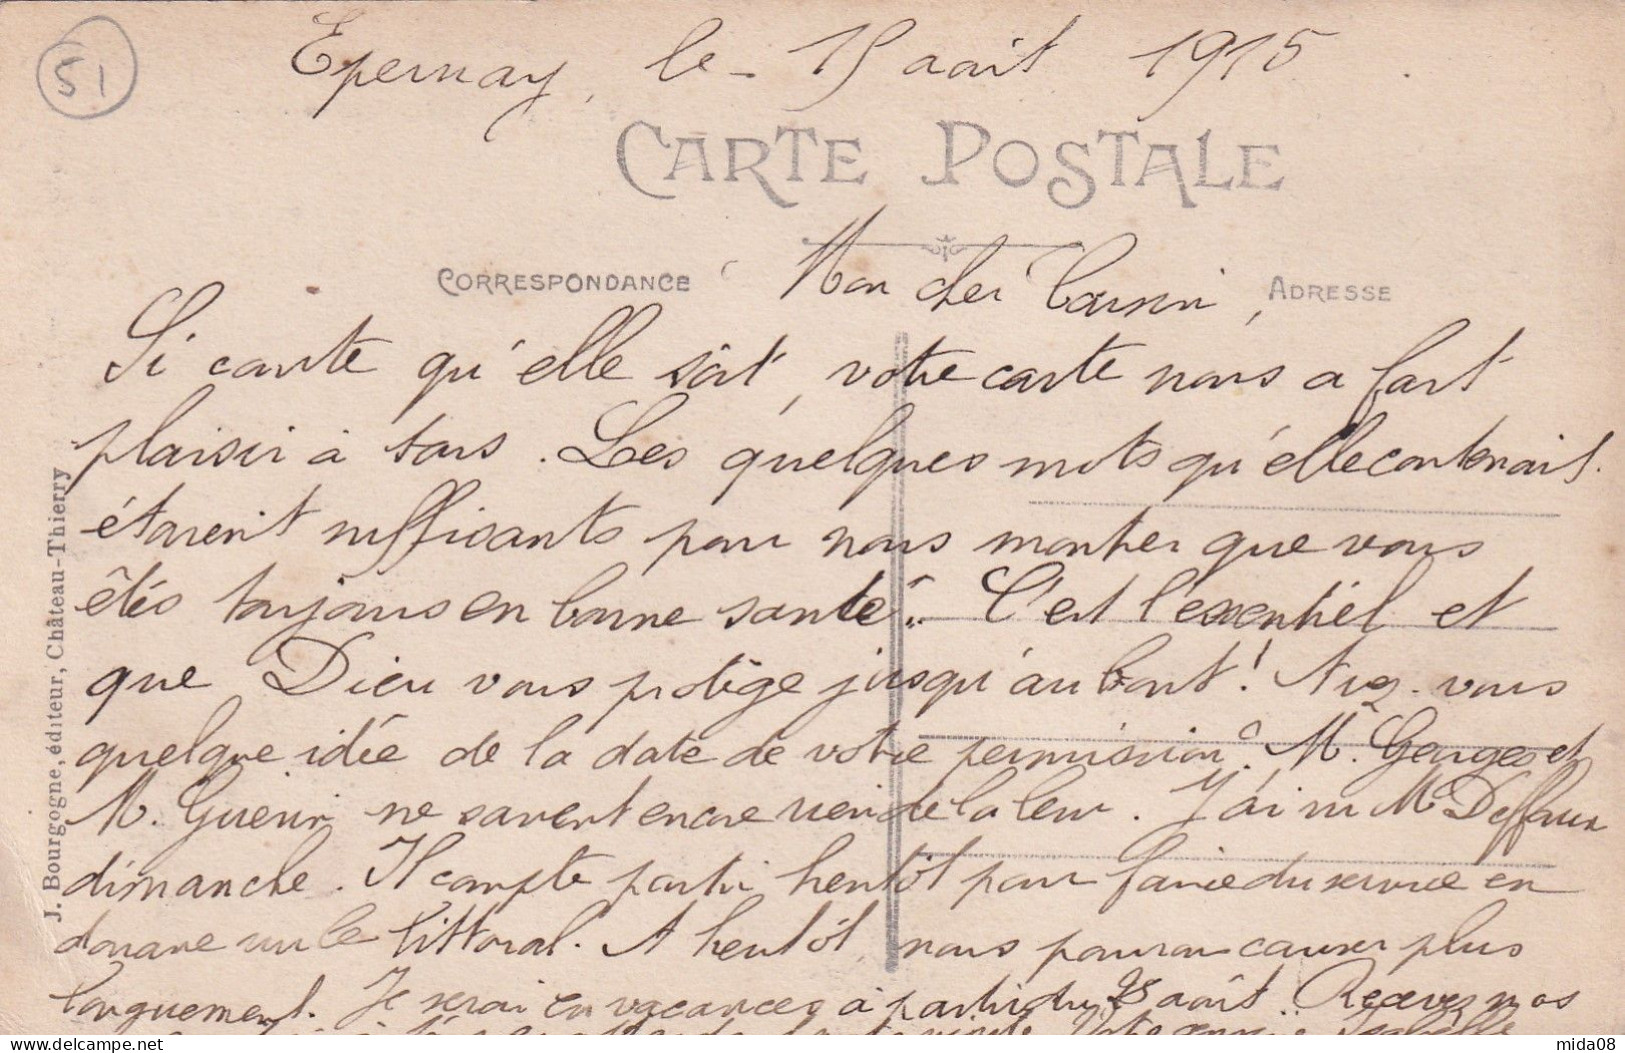 51
Epernay, le - 15 août 1915
CARTE POSTALE
CORRESPONDANCE
Mon cher Cousin,
ADRESSE
Si courte qu'elle soit, votre carte nous a fait
plaisir à tous. Les quelques mots qu'elle contenait
étaient suffisants pour nous montrer que vous
êtes toujours en bonne santé. C'est l'essentiel et
que Dieu vous protège jusqu'au bout! Avez-vous
quelque idée de la date de votre permission? M. Georges et
M. Guérin ne savent encore rien de la leur. J'ai vu M Deffaux
dimanche. Il compte partir bientôt pour faire du service en
douane sur le littoral. A bientôt, nous pourrons causer plus
longuement. Je serai en vacances à partir du 25 août. Recevez nos
J. Bourgogne, éditeur, Château-Thierry
mida08